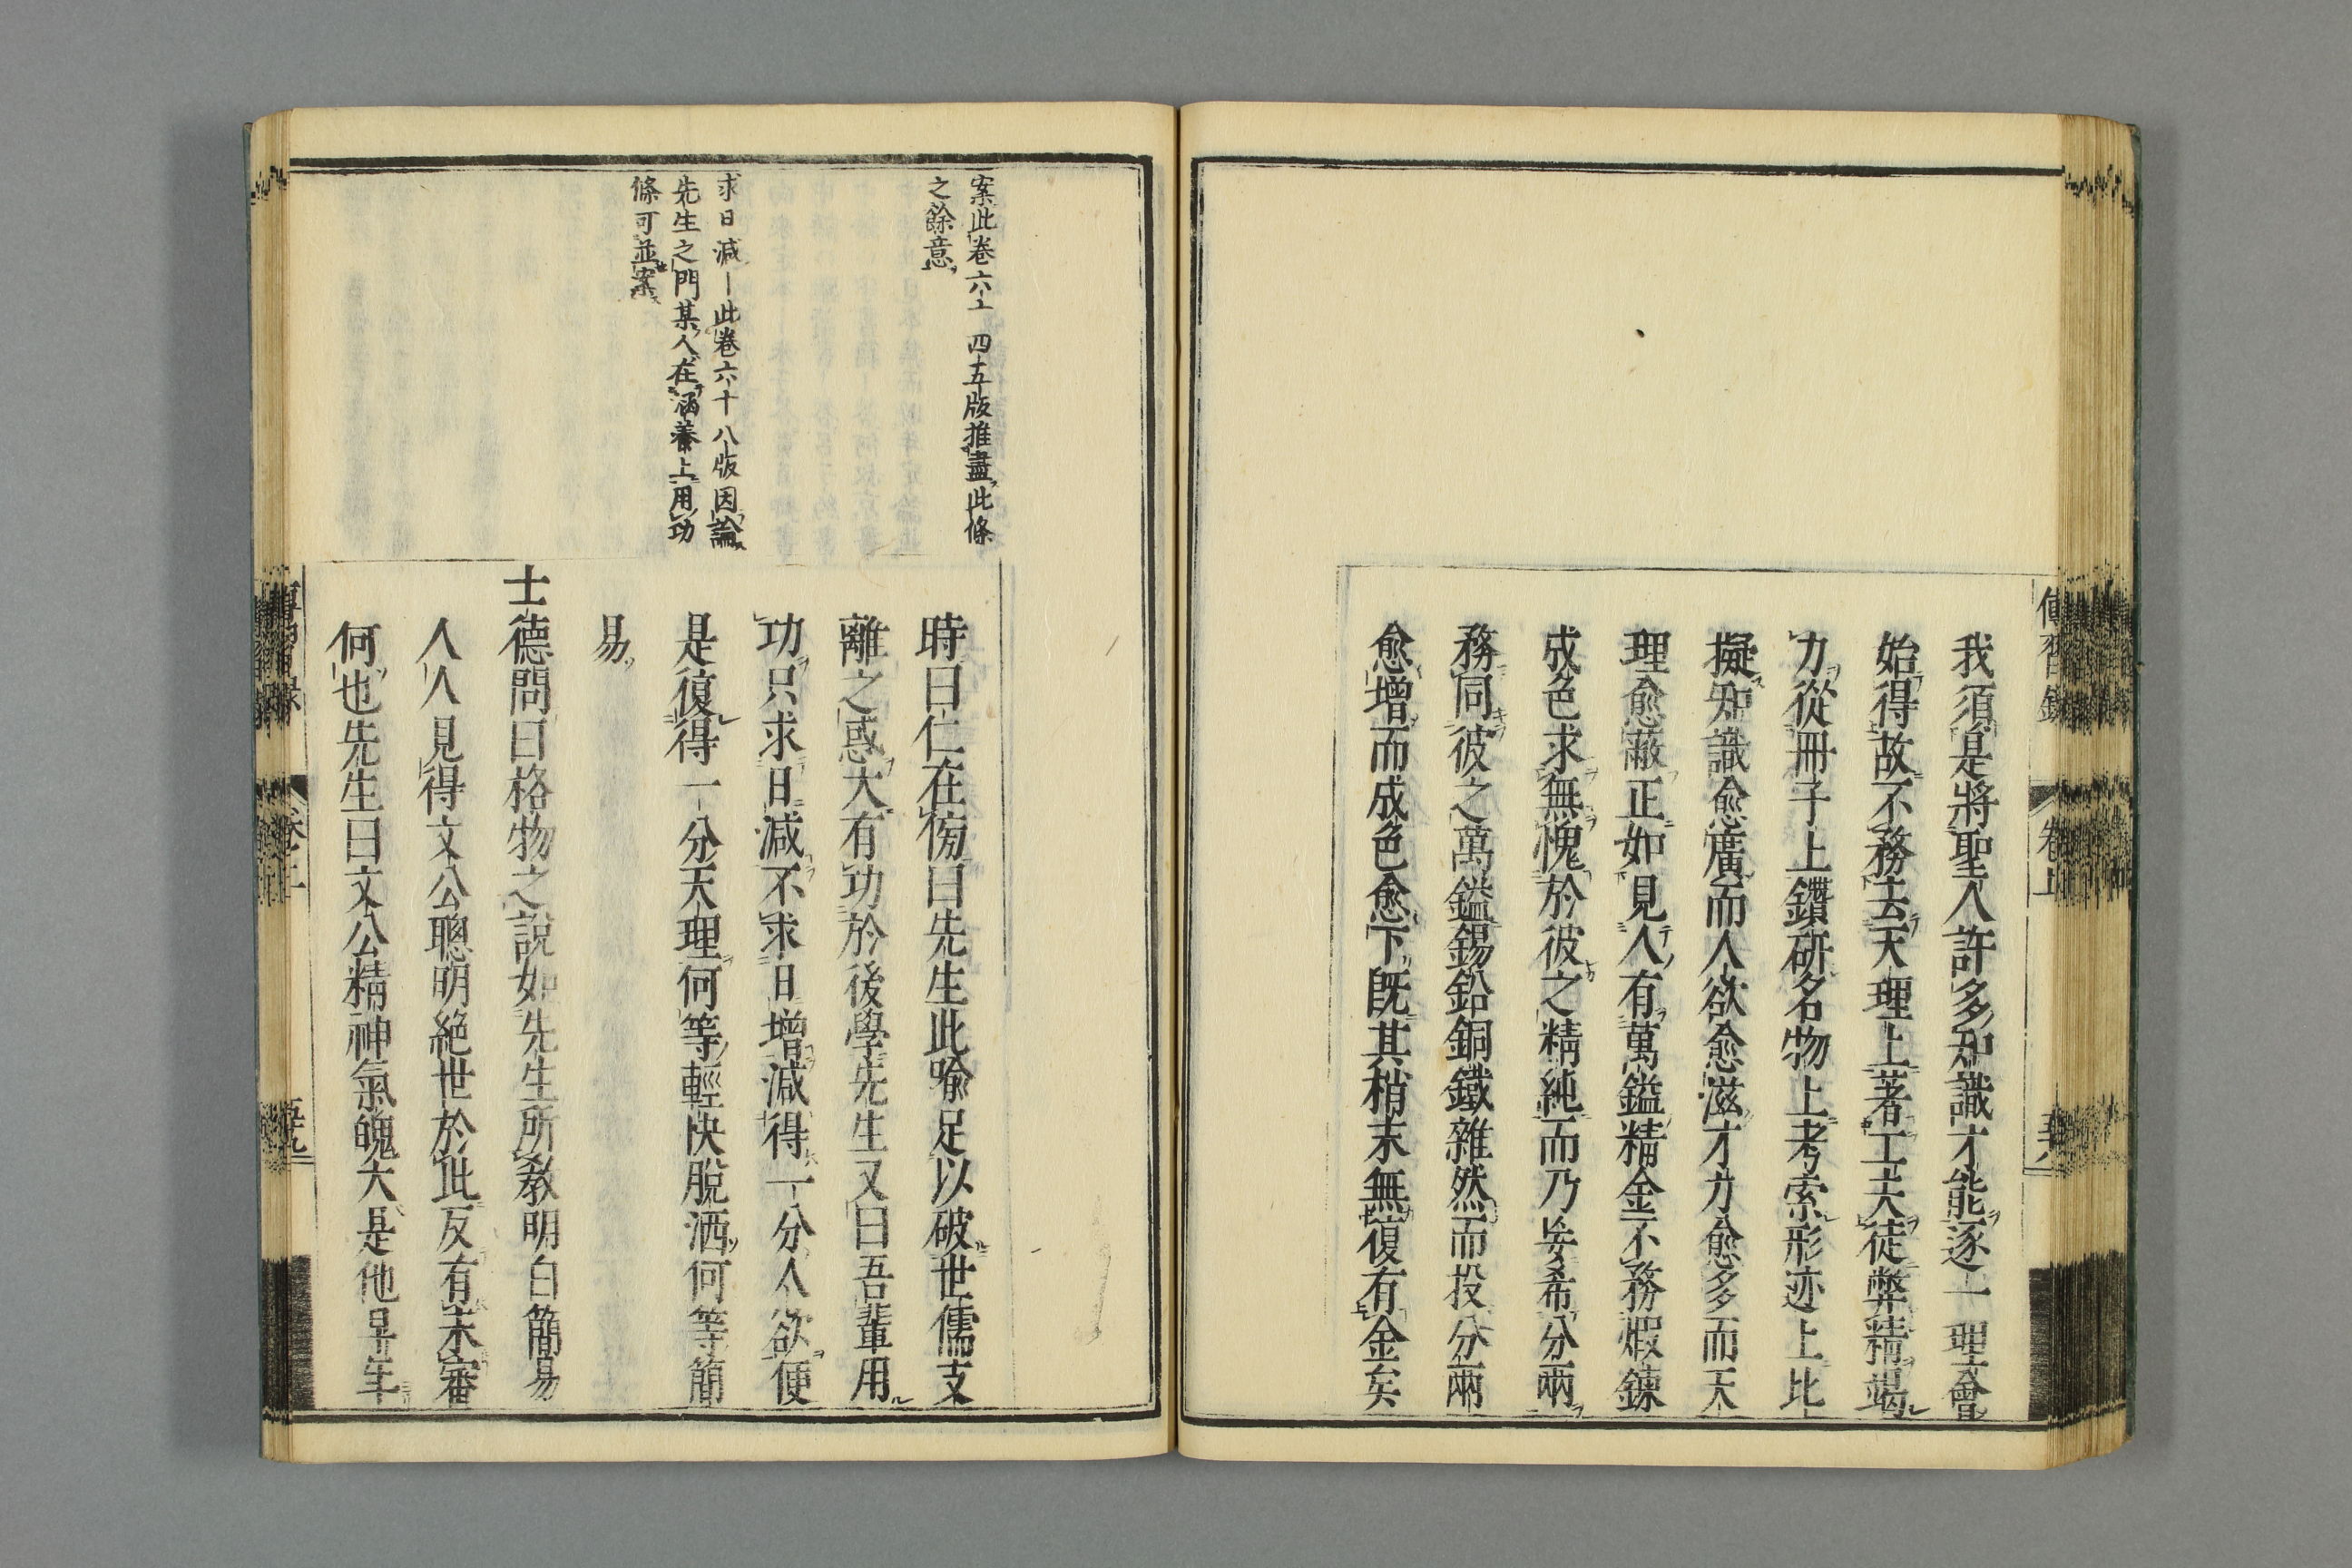 傳習錄
卷上
我須是將聖人許多知識才能逐一理會
始得故不務去天理上著工夫徒弊精竭
力從冊子上鑽研名物上考索形迹上比
擬知識愈廣而人欲愈滋才力愈多而天
理愈蔽正如見人有萬鎰精金不務煆鍊
成色求無愧於彼之精純而乃妄希分兩
務同彼之萬鎰錫鉛銅鐵雜然而投分兩
愈增而成色愈下既其梢末無復有金矣
案此卷六十四五版推盡此條
之餘意
求日減—此卷六十八版因論
先生之門某人在涵養上用功
條可並案
時曰仁在傍曰先生此喻足以破世儒支
離之惑大有功於後學先生又曰吾輩用
功只求日減不求日增減得一分人欲便
是復得一分天理何等輕快脫洒何等簡
易
士德問曰格物之說如先生所教明白簡易
人人見得文公聰明絕世於此反有未審
何也先生曰文公精神氣魄大是他早年